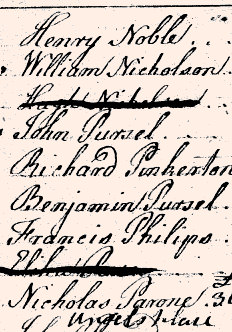 Henry Noble
William Nicholson
Hugh Nicholson
John Pursel
Richard Pinkerton
Benjamin Pursel
Francis Philips
Nicholas Parone